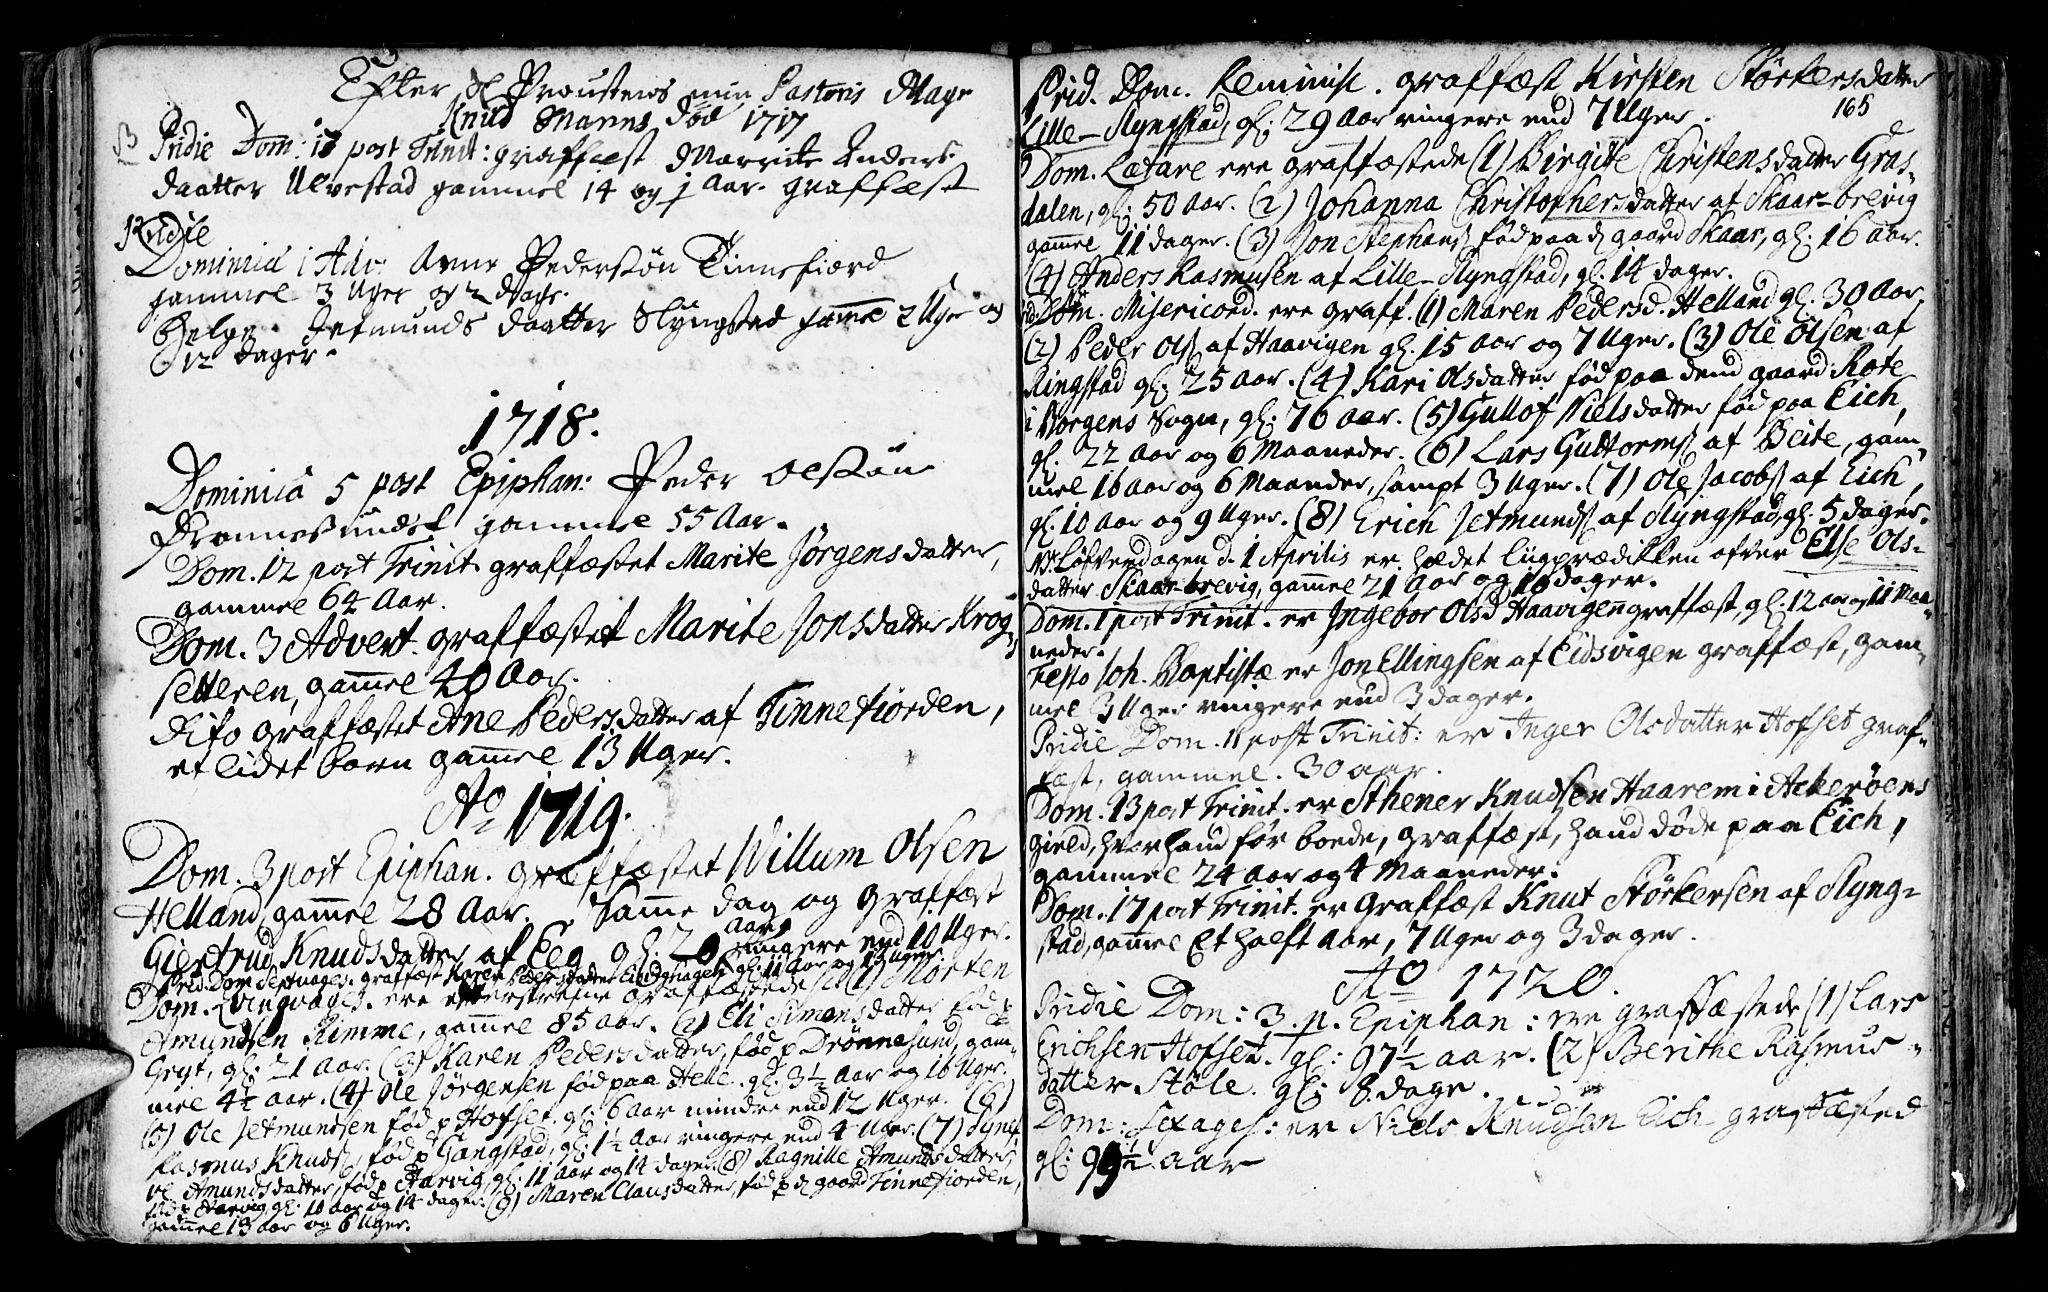 Efter Sl Proustens min Pastoris Mag
Knud Manns død 1717
Pridie Dom: 17 post Trinit: graffæst Marrite Anders
daatter Ulvestad gammel 14 og 1 Aar. graffæst
Pridie
Dominica 1 Adv: Arne Pederssøn Tinnefiord
gammel 3 Uger og 2 Dage.
Helge Jetmunds daatter Slyngstad gamel 2 Uger og
12 dager.
1718.
Dominica 5 post Epiphan: Peder Olssøn
Drønnessundet gammel 55 Aar.
Dom. 12 post Trinit. graffæstet Marite Jørgensdatter,
gammel 64 Aar.
Dom. 3 Advent. graffæstet Marite Jonsdatter Krog-
setteren, gamel 40 Aar.
Dito graffæstet Ane Pedersdatter af Tinnefiorden,
et lidet barn gamel 13 Uger.
Ao 1719.
Dom. 3 post Epiphan. graffæstet Willum Olsen
Helland, gamel 28 Aar. Same dag og graffæst
Giertrud Knudsdatter af Eeg gl: 20 Aar ringere end 10 Uger.
Prid. Dom Septuages. graffæst Karen Pedersdatter gl: 11 Aar og 13 Uger.
Dom. Qvinqvages. ere efterskrefne graffæstede (1) Morten
Amundsen Rimme, gamel 85 aar. (2) Eli Simensdatter fød p
Grgt, gl: 21 Aar. (3) Karen Pedersdatter, fød p Drønnesund, gam-
mel 4½ aar. (4) Ole Jørgensen fød paa Helle. gl: 3½ Aar og 16 Uger.
(5) Ole Jetmundsen fød p Hofset. gl: 6 aar mindre end 12 Uger. (6)
Rasmus Knuds, fød p Gangstad, gl: 1½ Aar ringere end 4 Uger. (7) Syne-
ve Amundsdatter, fød p Aarvig, gl: 11 aar og 14 dager. (8) Ragnille Amundsdatter,
fød p Aarvig, gl: 10 aar og 14 dager. (9) Maren Clausdatter, fød p d gaard Tinnefiorden,
gamel 13 aar og 6 Uger.
Prid. Dom. Reminisc. graffæst Kirsten Størkersdatter
165
Lille-Slyngstad, gl: 29 Aar ringere end 7 Uger.
Dom. Lætare ere graffæstede (1) Birgite Christensdatter Gras-
dalen, gl: 50 Aar. (2) Johanna Christophersdatter af Skaar-brevig
gamel 11 dager. (3) Jon Stephans fød paa d gaard Skaar, gl: 16 aar.
(4) Anders Rasmusen af Lille-Slyngstad, gl: 14 dager.
Dom. Misericord. ere graff. (1) Maren Pedersd. Helland gl: 30 Aar.
(2) Peder Ols af Haavigen gl: 15 aar og 7 Uger. (3) Ole Olsen af
Ringstad gl: 25 aar. (4) Kari Olsdatter fød paa dend gaard Rote
i Norgens Sogn, gl: 76 aar. (5) Gullof Nielsdatter fød paa Eich,
gl: 22 aar og 6 Maaneder. (6) Lars Guttorms af Beite, gam-
mel 16 aar og 6 Maander, sampt 3 Uger. (7) Ole Jacobs af Eich,
gl: 10 aar og 9 Uger. (8) Erich Jetmunds af Slyngstad, gl: 5 dager.
Løfverdagen d. 1 Aprilis er holdet liigprædikken ofver Else Ols-
datter Skaar-brevig, gamel 21 Aar og 10 dager.
Dom. 1 post Trinit. er Ingebor Olsd Haavigen graffæst, gl: 12 aar og 11 Maa-
neder.
Festo Joh. Baptistæ er Jon Ellingsen af Eidsvigen graffæst, gam-
mel 3 Uger ringere end 3 dager.
Pridie Dom. 11 post Trinit: er Inger Olsdatter Hofset graf-
fæst, gammel. 30 aar.
Dom. 13 post Trinit. er Sthener Knudsen Haarem i Ackerøens
gield, hvor hand før boede, graffæst, hand døde paa Eich,
gammel 24 aar og 4 Maaneder.
Dom. 17 post Trinit. er graffæst Knut Størkersen af Slyng-
stad, gamel Et halft Aar, 7 Uger og 3 dager.
Ao 1720.
Pridie Dom: 3. p. Epiphan: ere graffæstede (1) Lars
Erichsen Hofset. gl: 97½ aar. (2) Berithe Rasmus-
datter Støle. gl: 8 dage.
Dom: Sexages: er Niels Knudsen Eich graffæsted
gl: 99½ aar